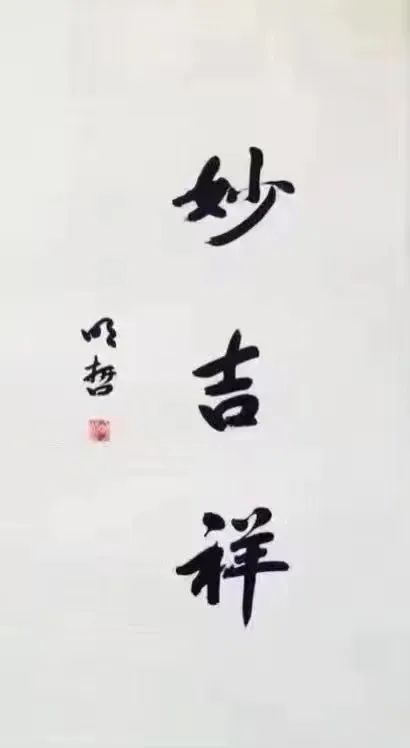 妙吉祥
明哲